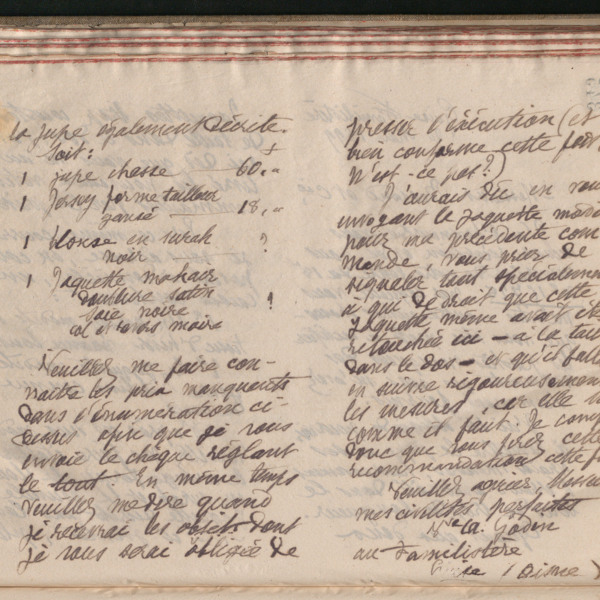 la jupe également décrite.
Soit :
1 jupe chasse — 60,"
1 Jersey forme tailleur
ganié — 18,"
1 blouse en surah
noir — ?
1 Jaquette mohair
doublure satin
soie noire
col et revers moire ?
Veuillez me faire con-
naître les prix manquants
dans l'énumération ci-
dessus afin que je vous
envoie le chèque réglant
le tout. En même temps
veuillez me dire quand
je recevrai les objets dont
je vous serai obligée de
presser l'exécution (et
bien conforme cette fois
n'est-ce pas ?)
J'aurais dû en vous
envoyant la jaquette
pour ma précédente com
mande, vous prier de
signaler tout spécialemen
à qui de droit que cette
jaquette même avait été
retouchée ici — à la tail
dans le dos — et qu'il fall
en suivre rigoureusement
les mesures, car elle
comme il faut. Je comp
donc que vous ferez cette
recommandation cette f
Veuillez agréer, Messieu
mes civilités parfaites
Vve A. Godin
au Familistère
Guise (Aisne)